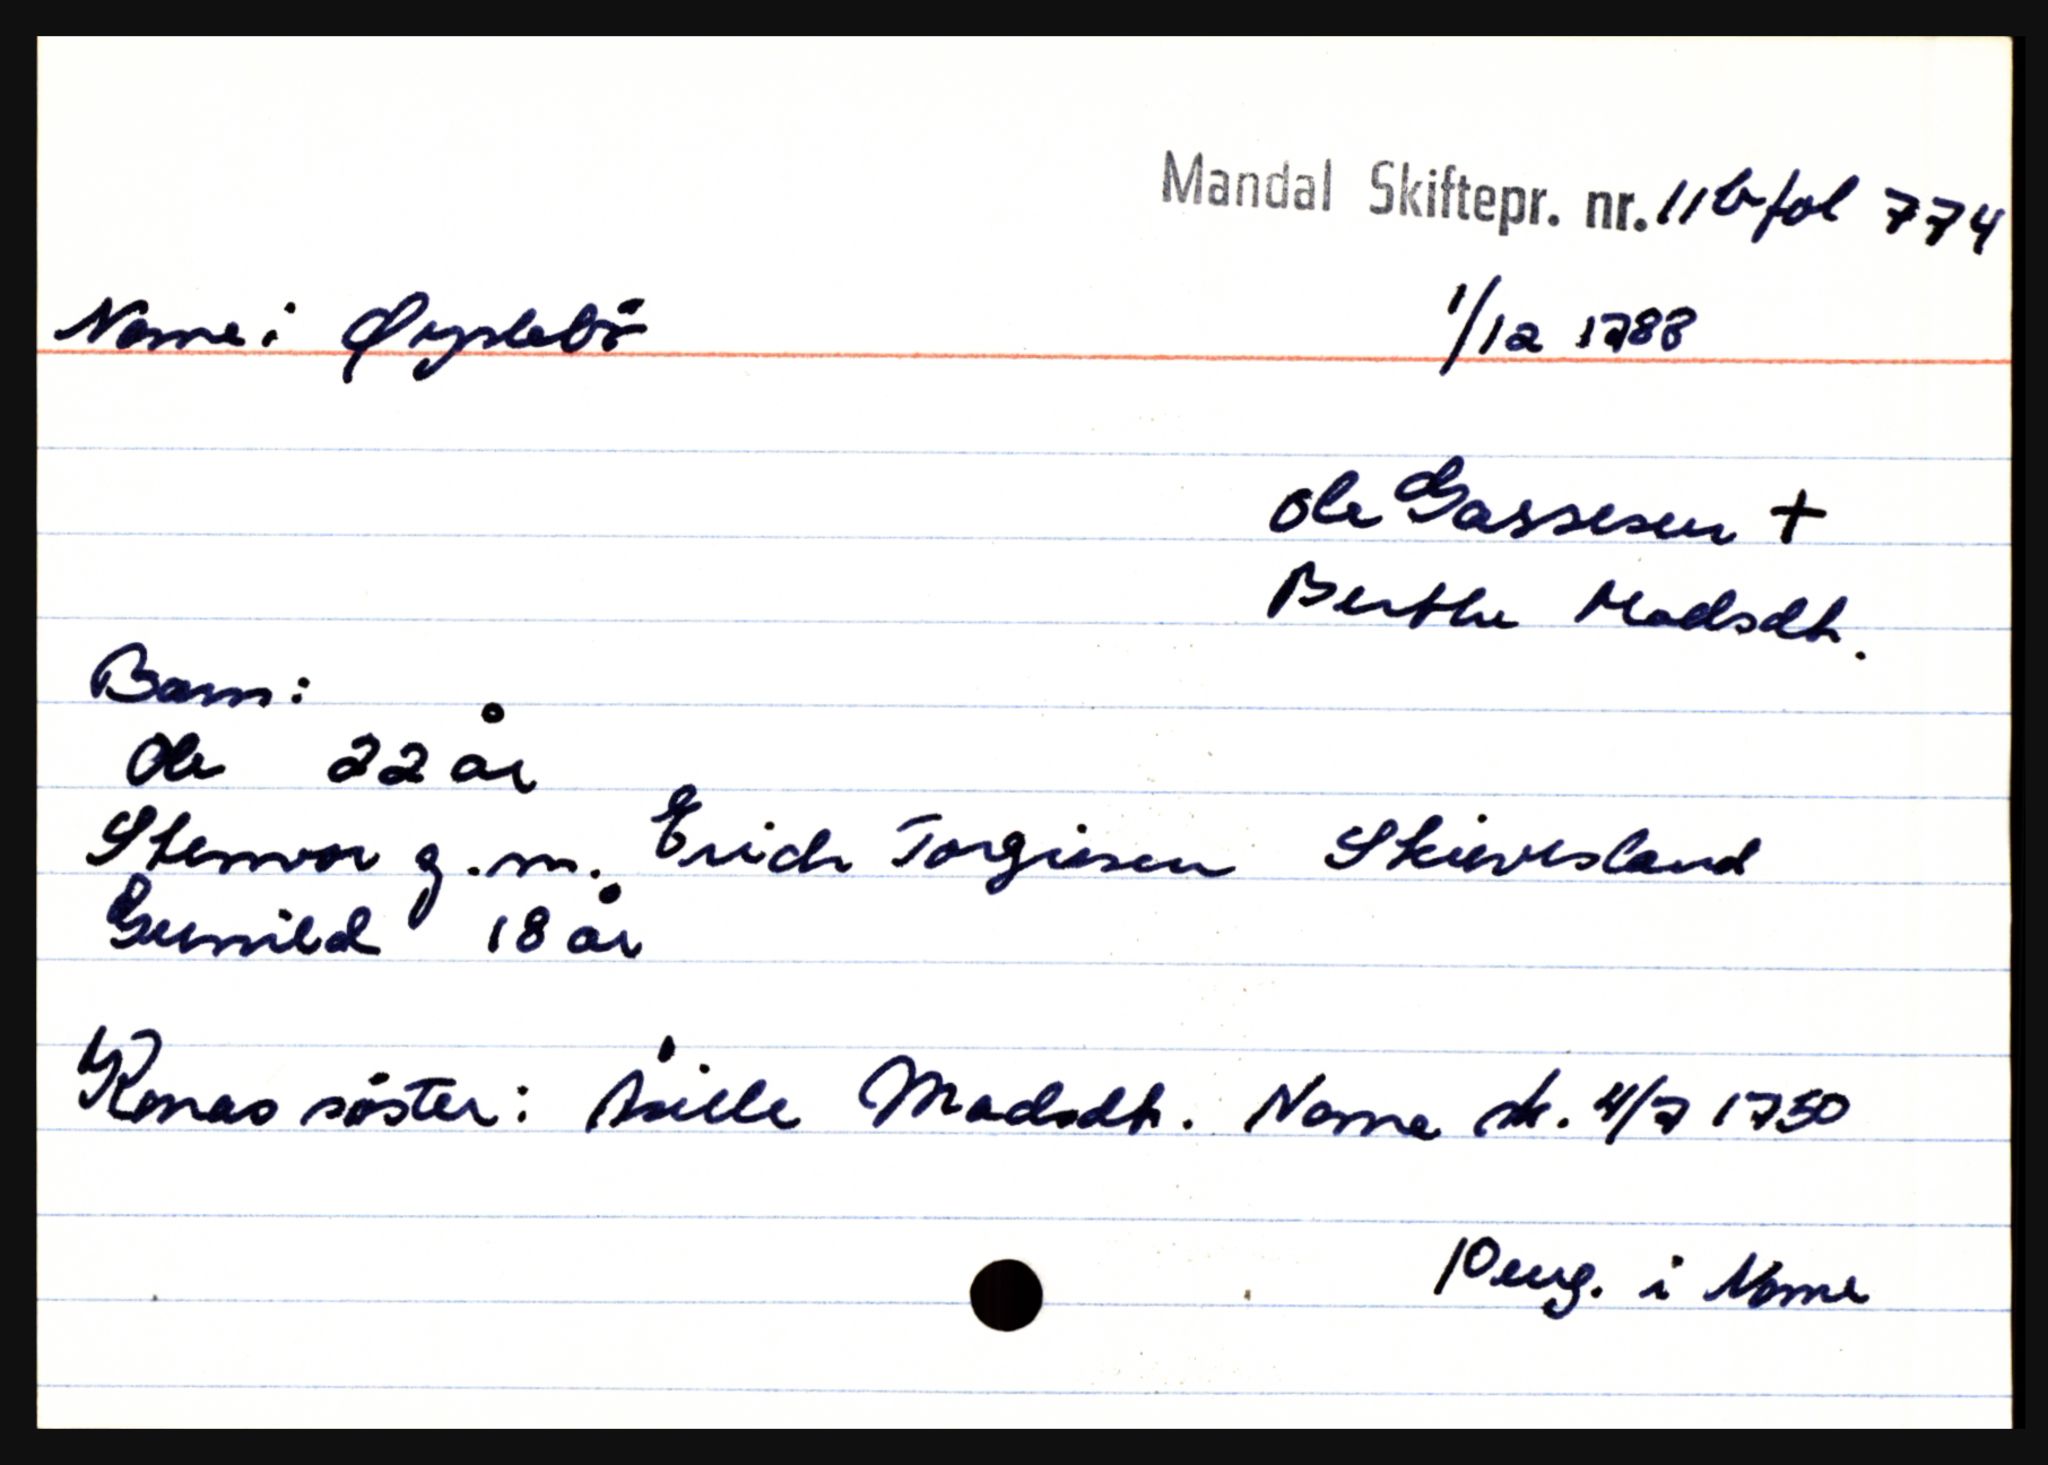 Mandal Skiftepr. nr. 11 b fol 774
Nome i Øyslebö 1/12 1788
Ole Gassesen +
Berthe Madsdt.
Barn:
Ole 22 år
Stenvor g.m. Erich Torgiesen Skievesland
Gunnild 18 år
Konas söster: Åsille Madsdt. Nome sk. 4/7 1750
Peng. i Nome